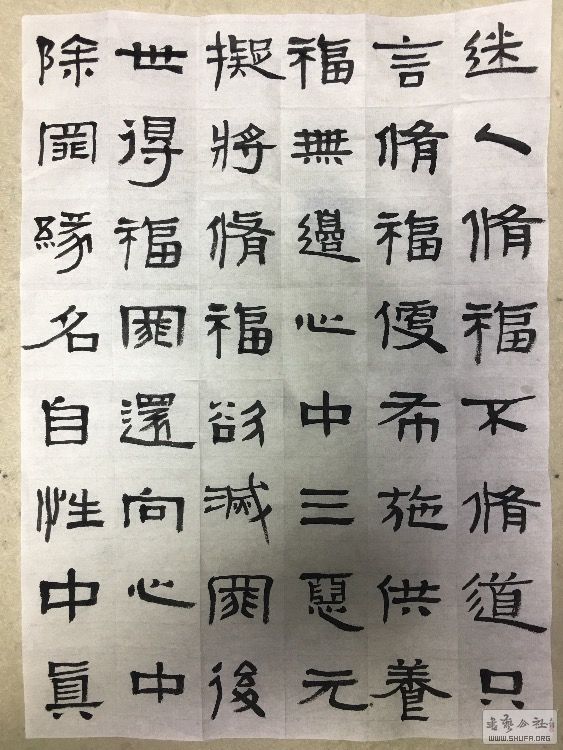 迷人脩福不脩道只
言脩福便布施供養
福無邊心中三惡元
擬將脩福欲滅罪後
世得福罪還向心中
除罪緣名自性中眞
書藝公社
WWW.SHUFA.ORG